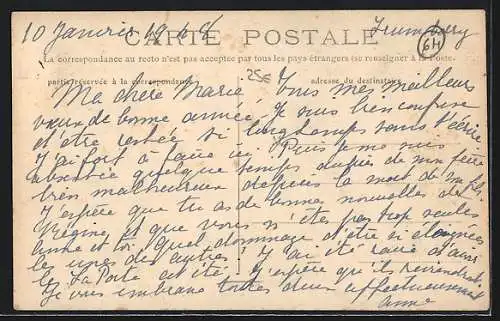 10 Janvier 19 Irumberry
CARTE POSTALE
64
La correspondance au recto n'est pas acceptée par tous les pays étrangers (se renseigner à la Poste.
partie réservée à la correspondance 25€ adresse du destinataire
Ma chère Marie, Tous mes meilleurs
vœux de bonne année, Je suis bien confuse
d'être restée si longtemps sans t'écrire
J'ai fort à faire ici. Puis je me suis
absentée quelque temps auprès de mon frère
bien malheureux depuis la mort de
J'espère que tu as de bonnes nouvelles de
Régine, et que vous n'êtes pas trop seules
Anne et toi. Quel dommage d'être si éloignées
les unes des autres! J'ai été ravie d'avoir
les La Porte cet été. J'espère qu'ils reviendront
Je vous embrasse toutes deux affectueusement
Anne